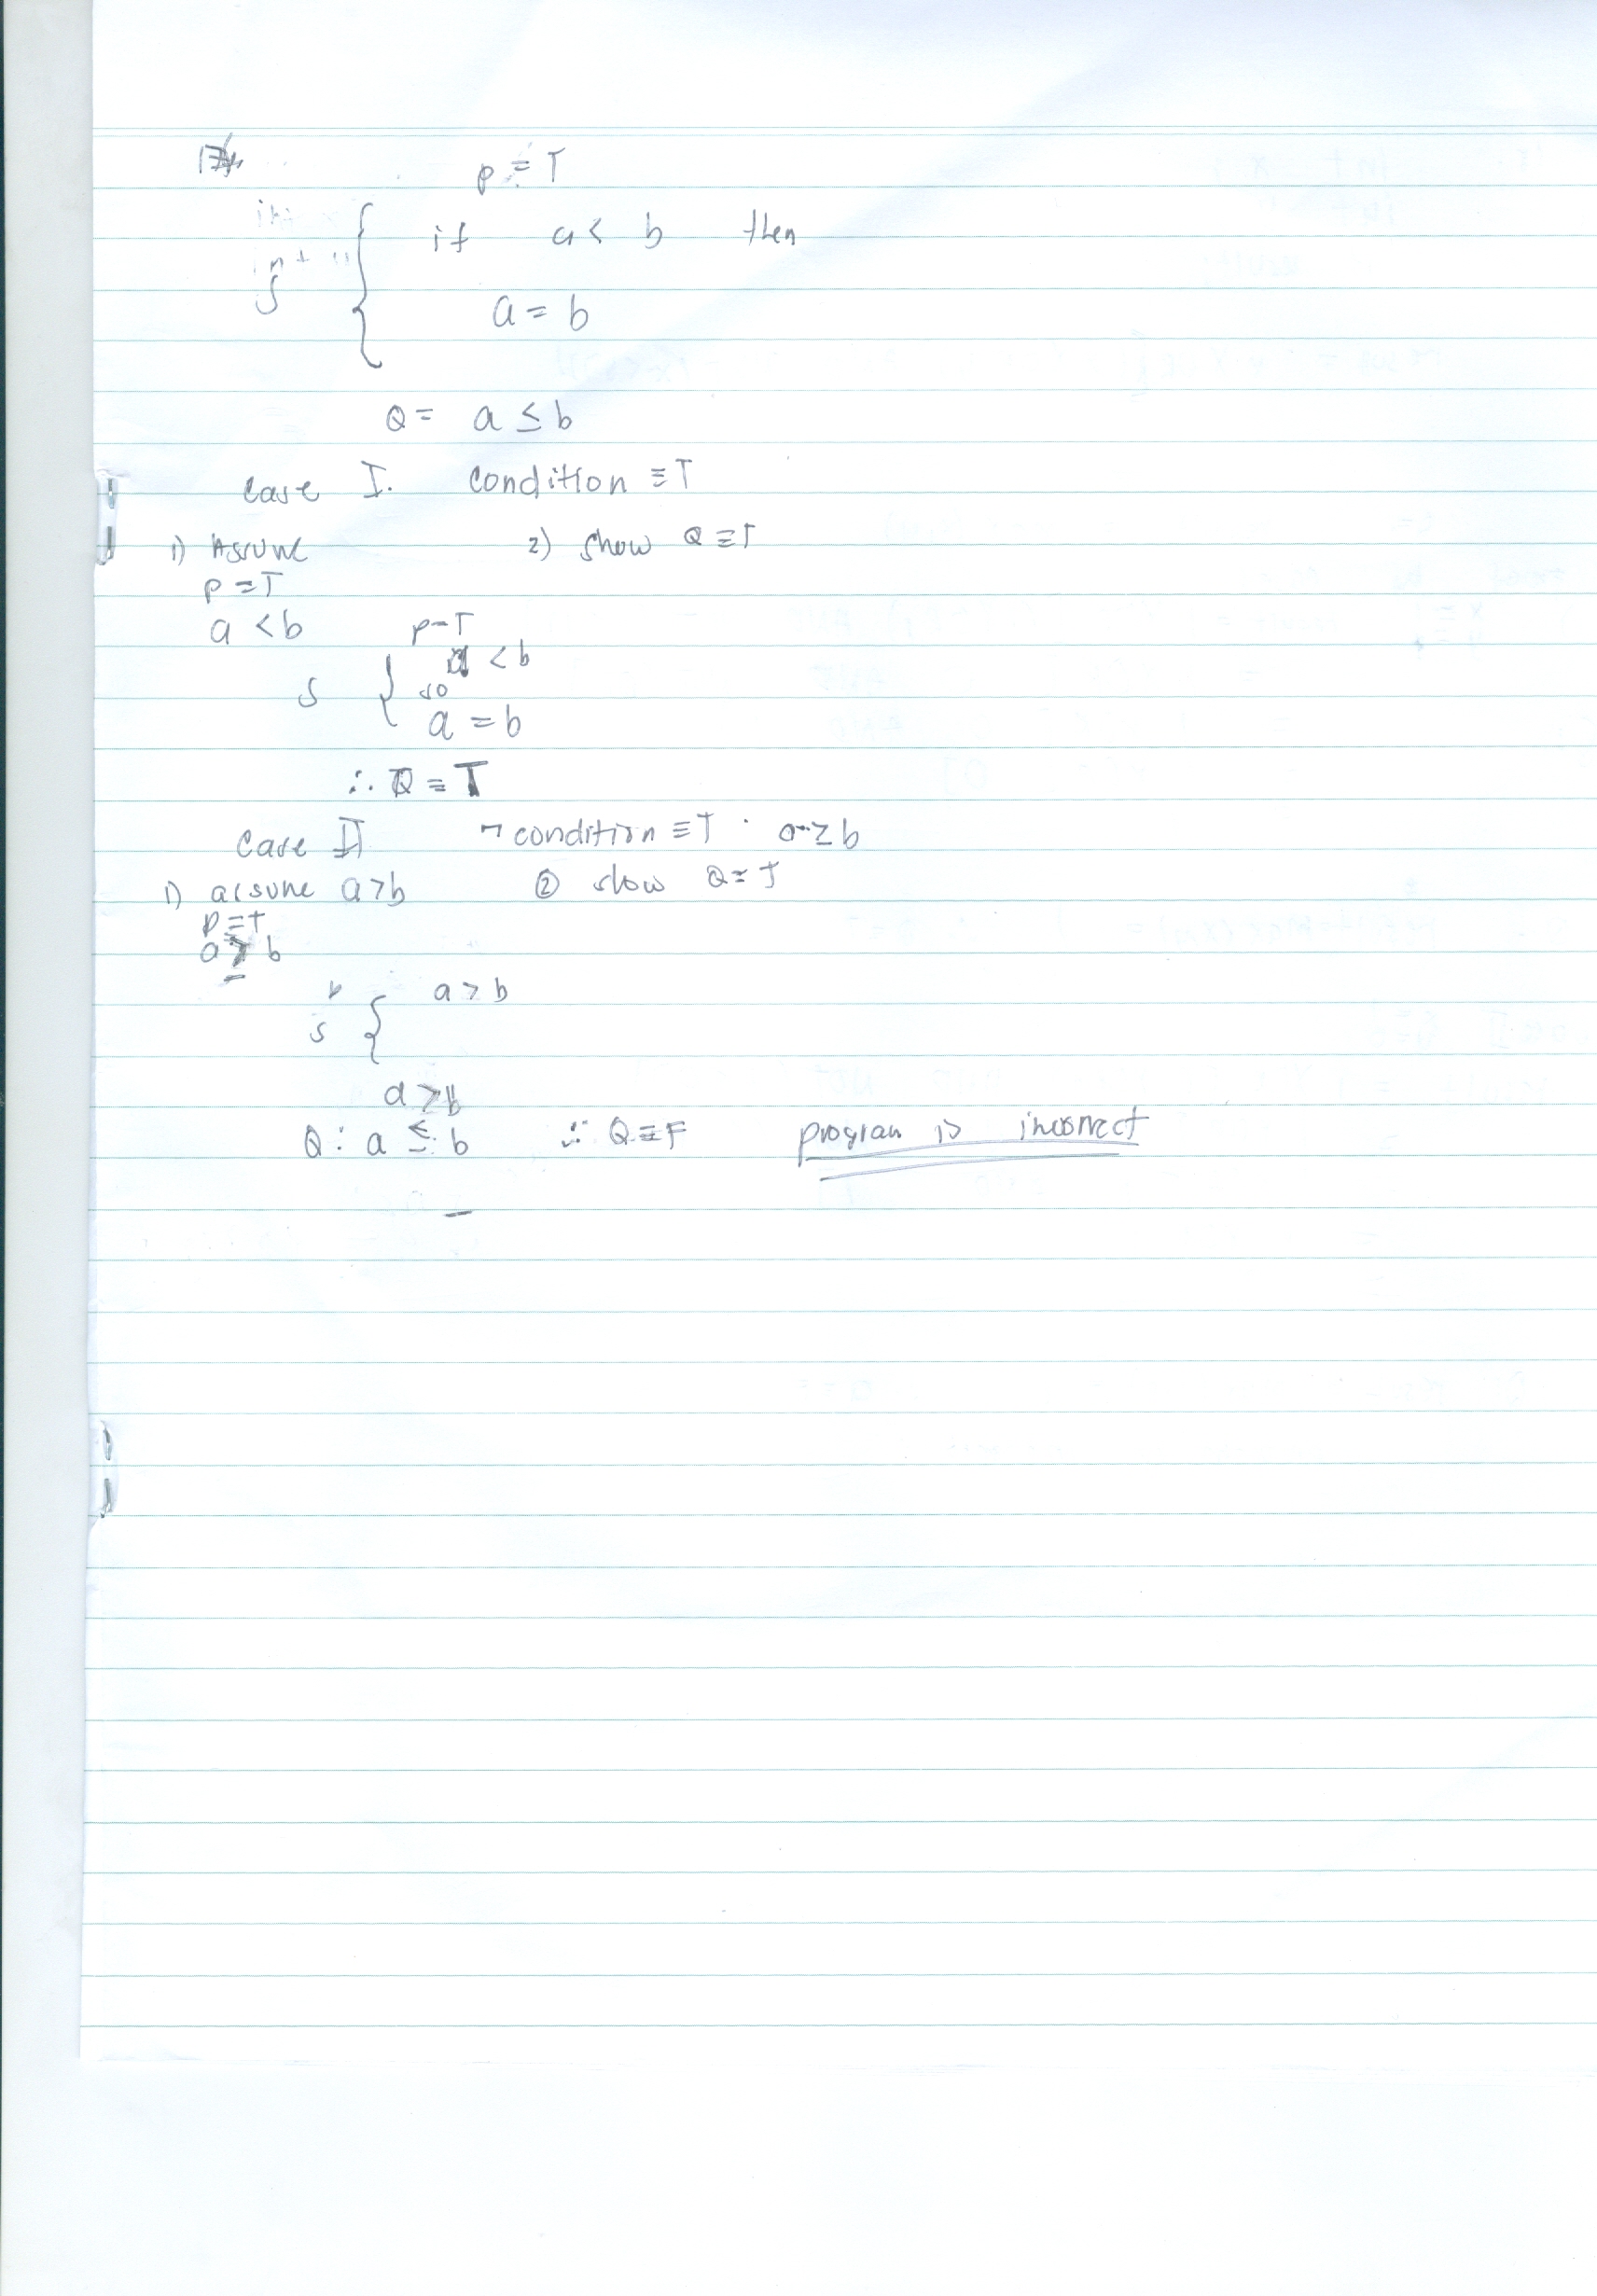 p = T
if a < b then
S {
a = b
Q = a ≤ b
Case I. Condition ≡ T
1) Assume 2) show Q ≡ T
p = T
a < b p = T
a < b
S { so
a = b
∴ Q = T
Case II ¬ condition ≡ T a ≥ b
1) assume a > b ② show Q = T
P = T
a ≥ b
a > b
S {
a > b
Q : a ≤ b ∴ Q ≡ F program is incorrect